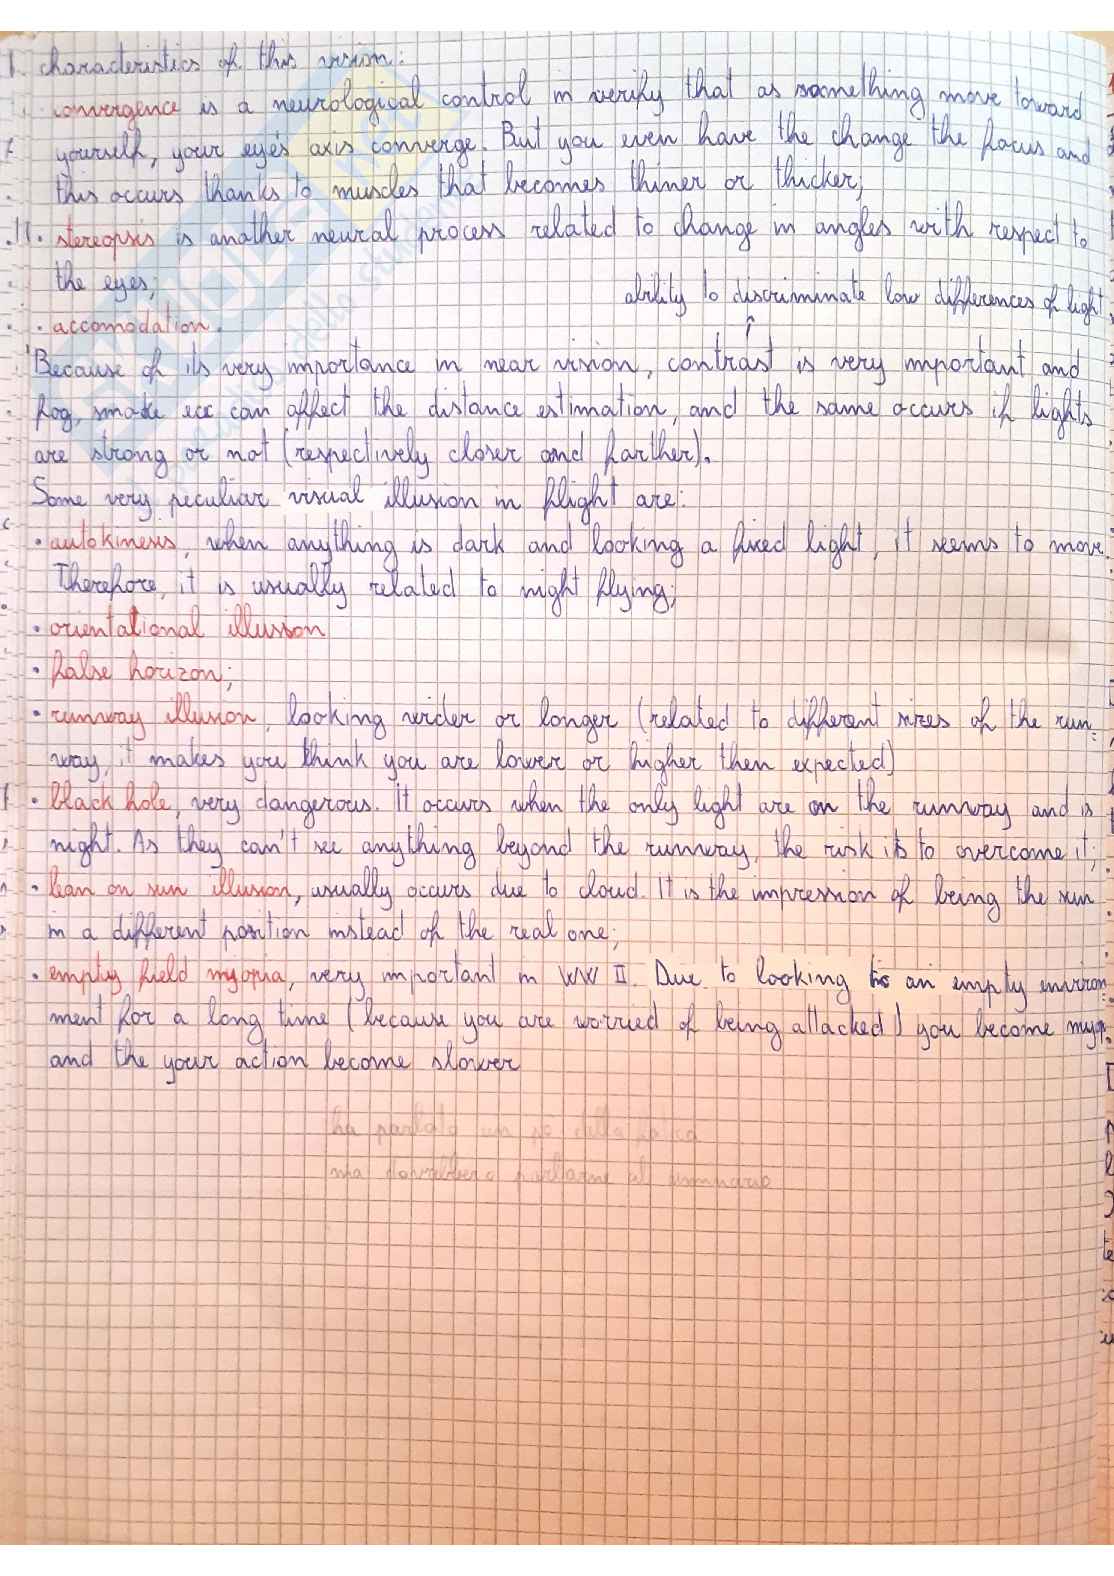 characteristics of this vision:
convergence is a neurological control in verify that as soomething move toward
yourself, your eye's axis converge. But you even have the change the focus and
this occurs thanks to muscles that becomes thinner or thicker;
· stereopsis is another neural process related to change in angles with respect to
the eyes;
ability to discriminate low differences of light
· accomodation.
↑
Because of its very importance in near vision, contrast is very important and
fog, smoke ecc can affect the distance estimation, and the same occurs if lights
are strong or not (respectively closer and farther).
Some very peculiar visual illusion in flight are:
· autokinesis, when anything is dark and looking a fixed light, it seems to move.
Therefore, it is usually related to night flying;
· orientational illusion
· false horizon;
· runway illusion, looking wider or longer (related to different sizes of the run=
way, it makes you think you are lower or higher then expected)
· black hole, very dangerous. It occurs when the only light are on the runway and is
night. As they can't see anything beyond the runway, the risk is to overcome it;
· lean on sun illusion, usually occurs due to cloud. It is the impression of being the sun
in a different position instead of the real one;
· empty field myopia, very important in WW II. Due to looking to an empty environ=
ment for a long time (because you are worried of being attacked) you become myop.
and the your action become slower
ha parlato un po' della
ma dovrebbero parlarne al seminario